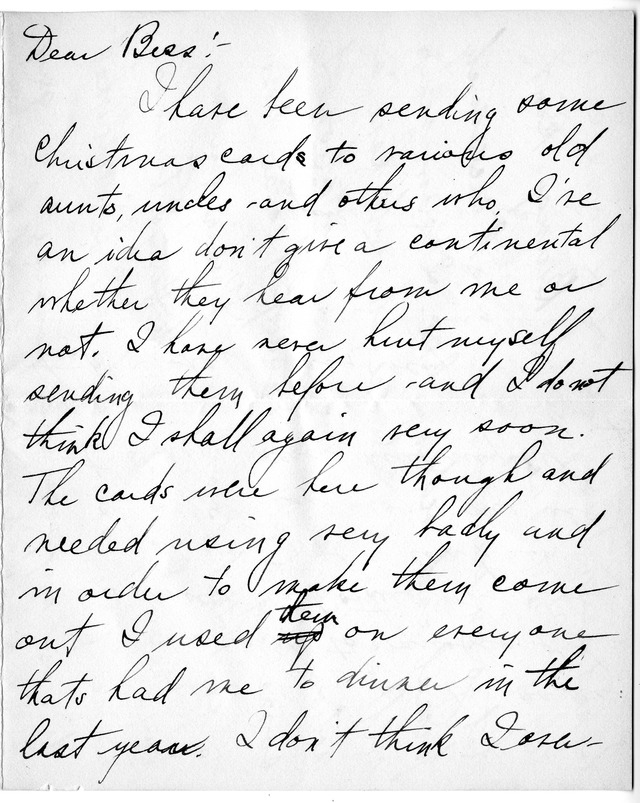 Dear Bess:-
I have been sending some
Christmas cards to various old
aunts, uncles and others who, I've
an idea don't give a continental
whether they hear from me or
not. I have never hurt myself
sending them before and I do not
think I shall again very soon.
The cards were here though and
needed using very badly and
in order to make them come
out I used them on everyone
thats had me to dinner in the
last year. I don't think I over-